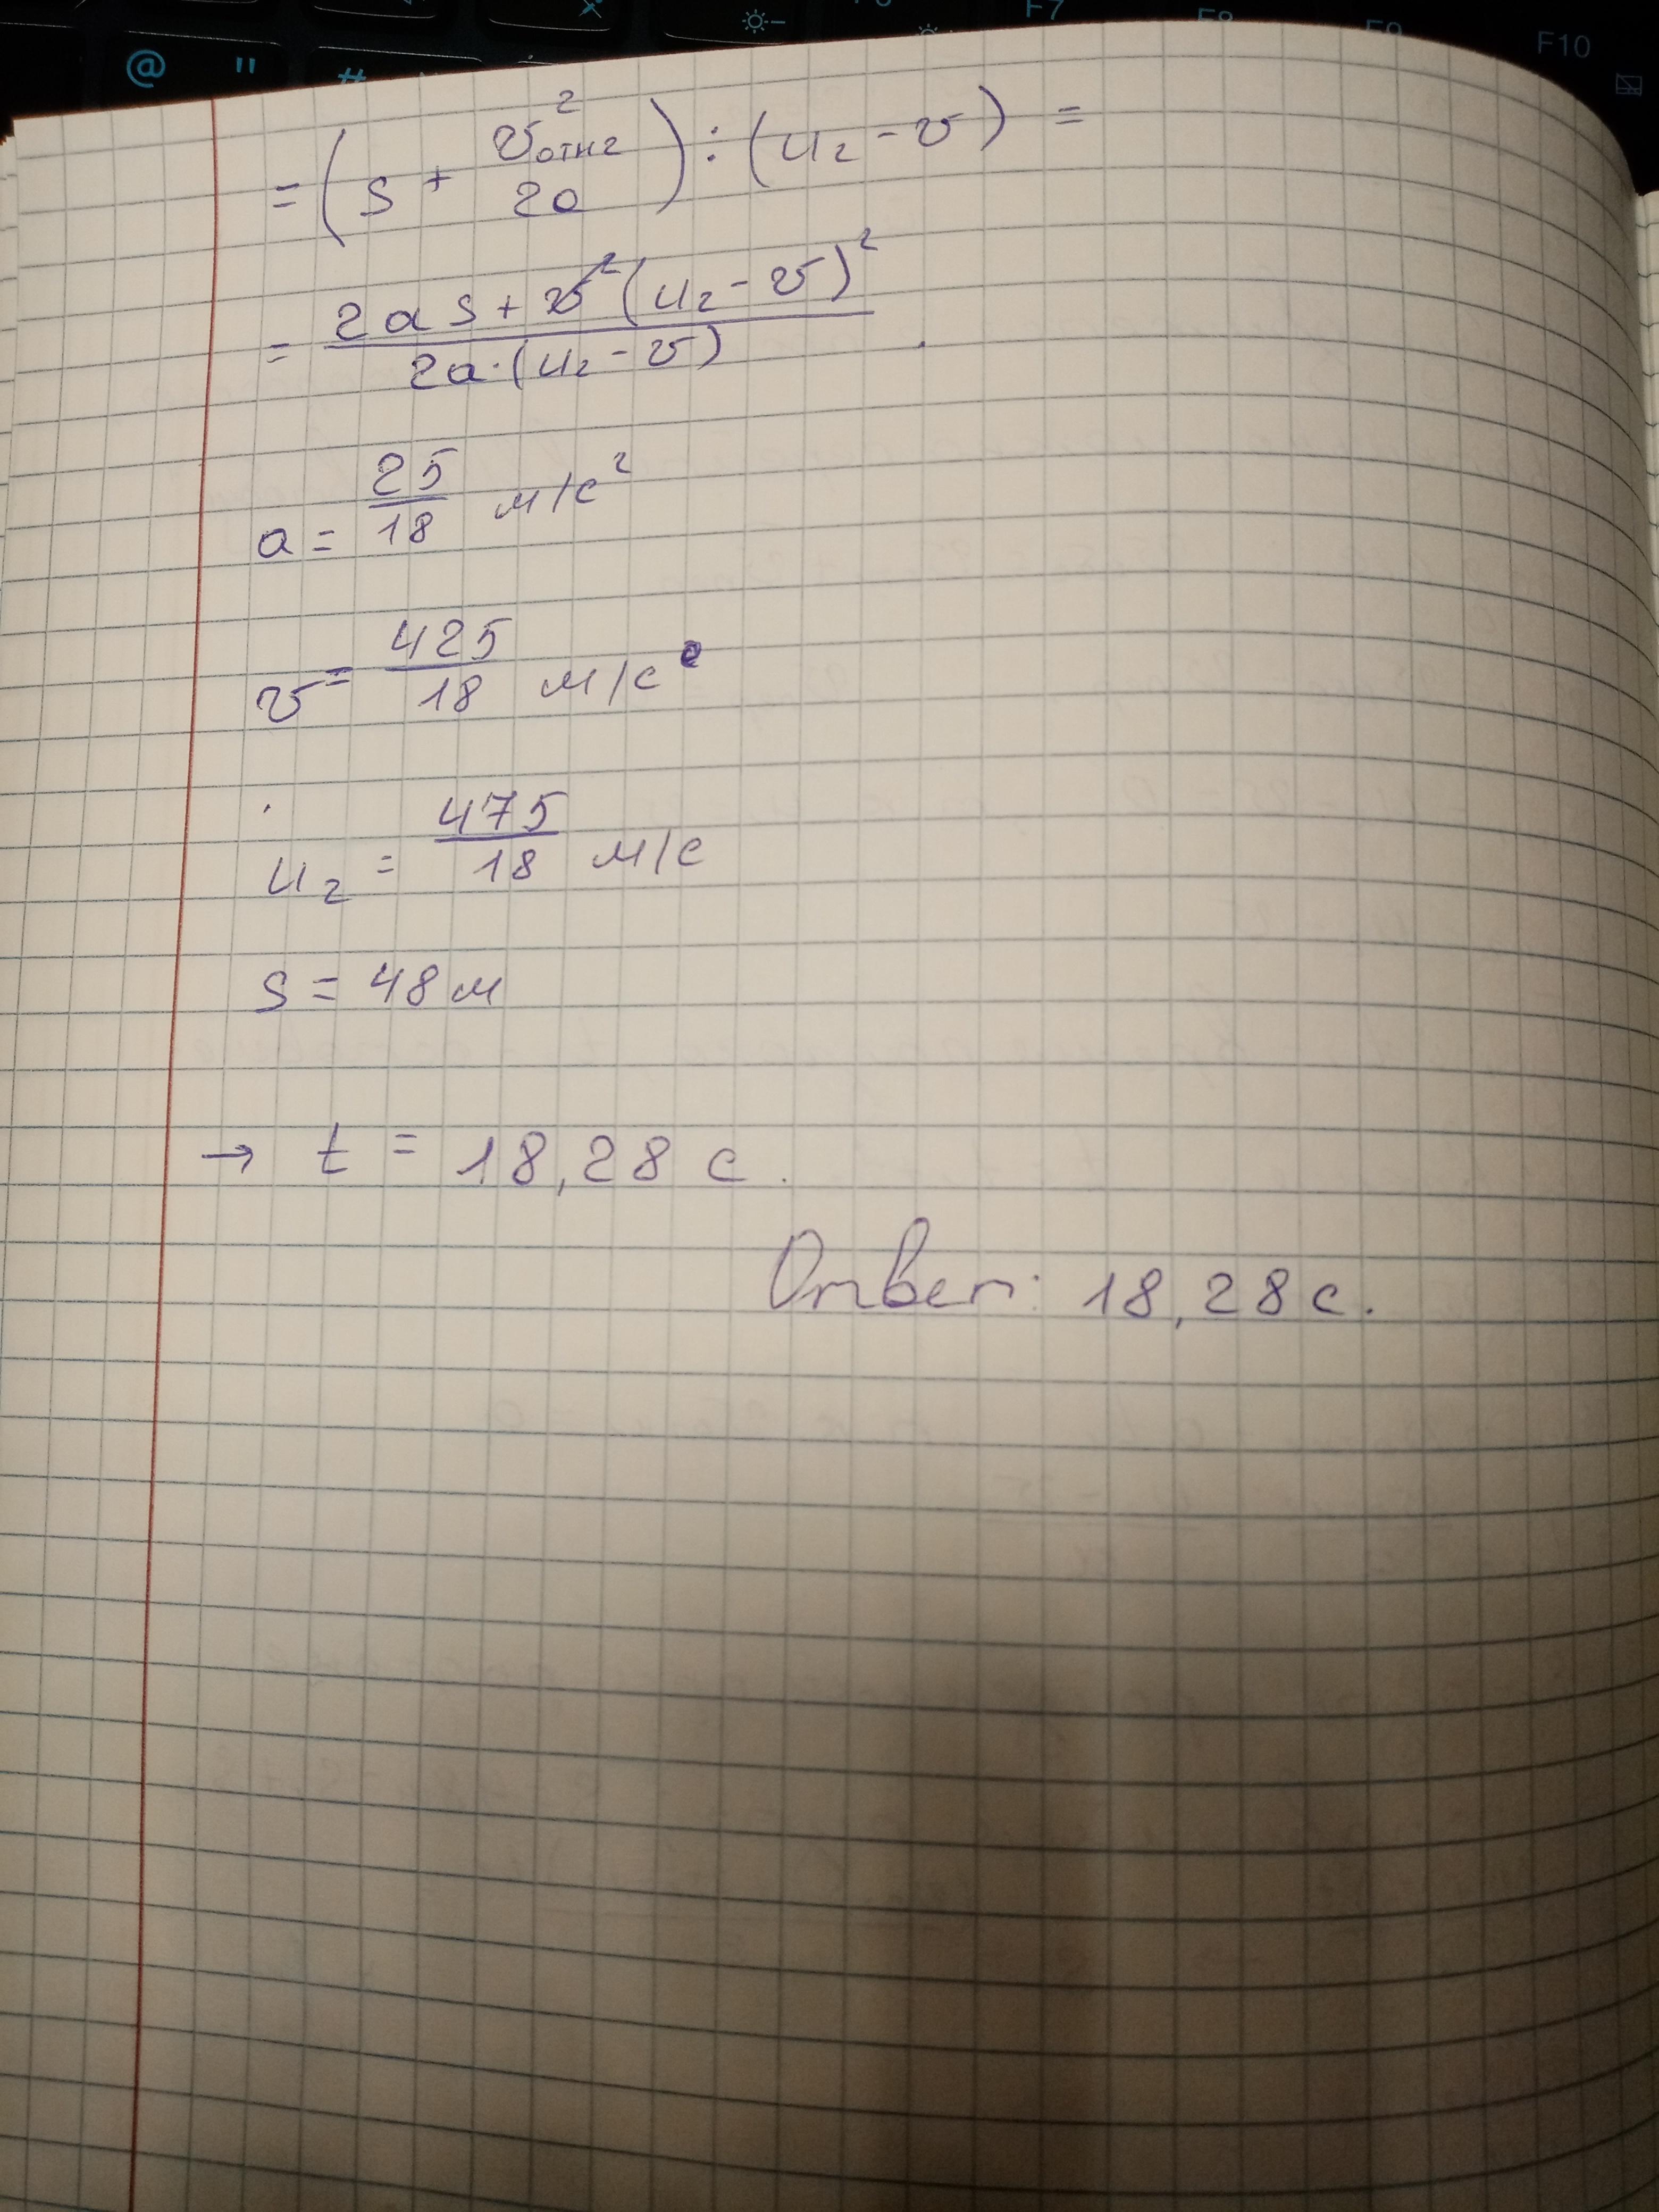 @ " #
F7 F8 F9 F10
= (s + v²отн2 / 2a) : (u₂ - v) =
= 2as + (u₂ - v)² / 2a·(u₂ - v)
a = 25/18 м/с²
v = 425/18 м/с
u₂ = 475/18 м/с
s = 48 м
→ t = 18,28 с.
Ответ: 18,28 с.